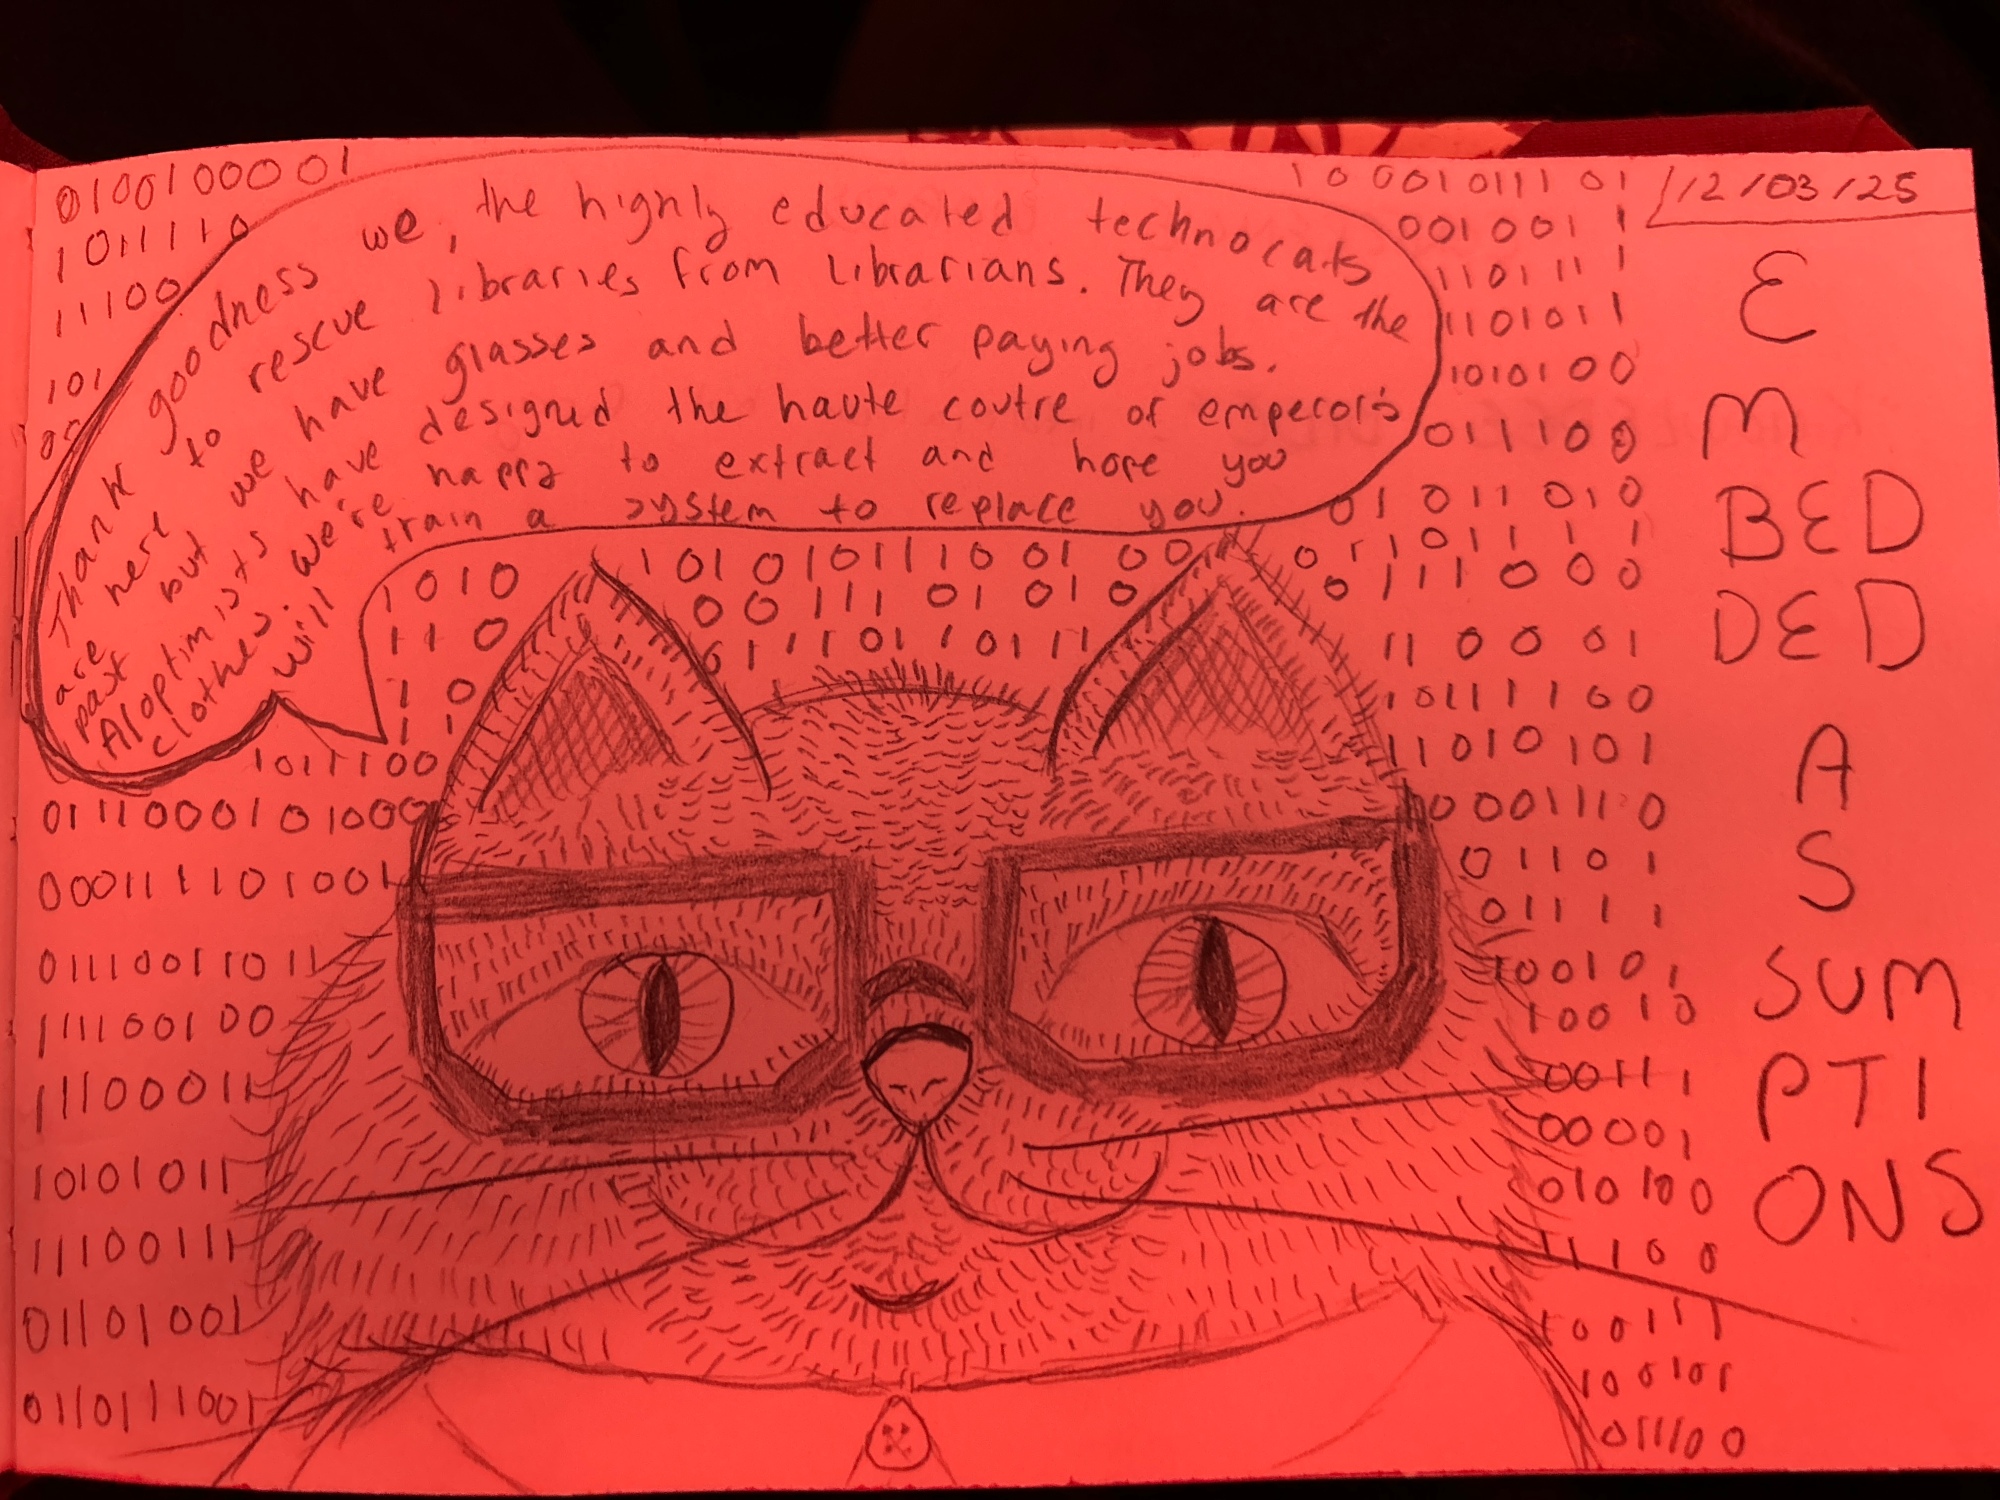 12/03/25
Thank goodness we, the highly educated technocats
are here to rescue libraries from librarians. They are the
past but we have glasses and better paying jobs.
AI optimists have designed the haute coutre of emperor's
clothes we're happy to extract and hope you
will train a system to replace you.
E
M
BED
DED
A
S
SUM
PTI
ONS
01001000001
1011110
11100
101
1010
110
10
1011100
011100010 1000
0001111101001
01110011011
111100100
11100011
10101011
11100111
01101001
0110111001
10001011101
0010011
110111
1101011
1010100
011100
01011010
0111000
110001
10111100
11010101
00011110
01101
01111
10010
00111
00001
010100
11100
100111
100101
011100